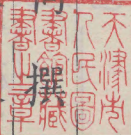 天津市
人民圖
書館藏
書之章
撰